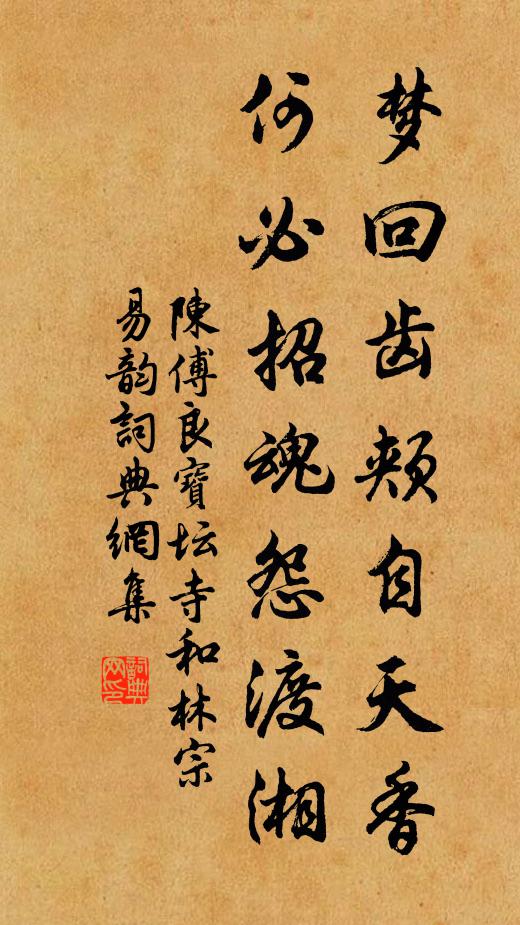 梦回齿颊自天香
何必招魂怨渡湘
陳傅良寶坛寺和林宗
易韵詞典網集
詞典网印